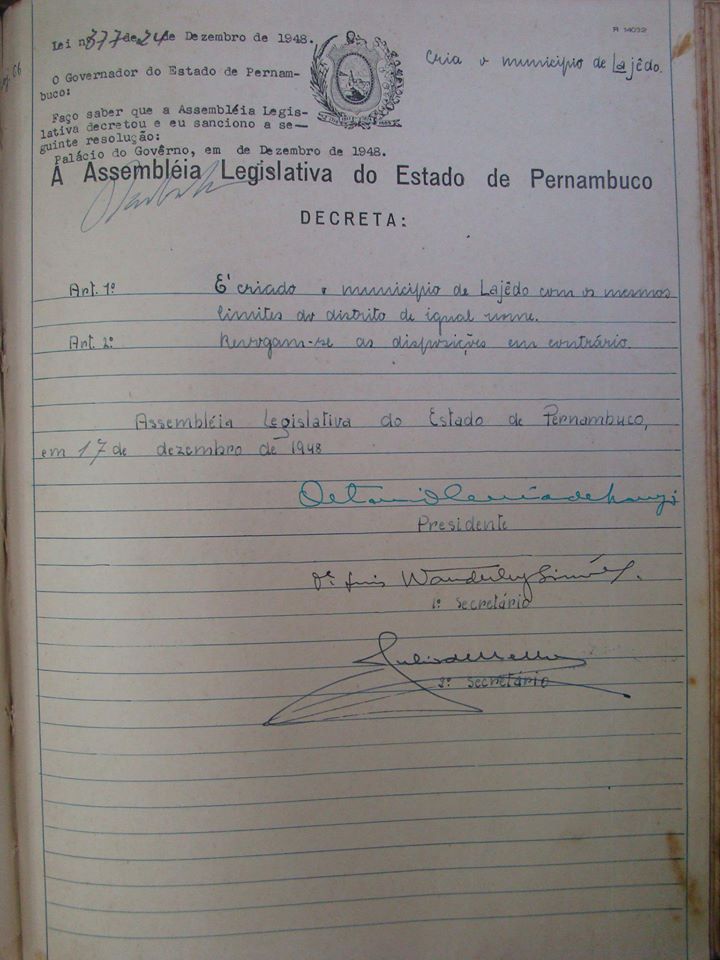 R 14032
Lei nº 377 de 24 de Dezembro de 1948.
Cria o município de Lajêdo.
O Governador do Estado de Pernam-
buco:
Faço saber que a Assembléia Legis-
lativa decretou e eu sanciono a se-
guinte resolução:
Palácio do Govêrno, em   de Dezembro de 1948.
A Assembléia Legislativa do Estado de Pernambuco
DECRETA:
Art. 1º E' criado o município de Lajêdo com os mesmos
limites do distrito de igual nome.
Art. 2º Revogam-se as disposições em contrário.
Assembléia Legislativa do Estado de Pernambuco,
em 17 de dezembro de 1948
Presidente
Luis Wanderley Simões.
1º secretário
2º secretário